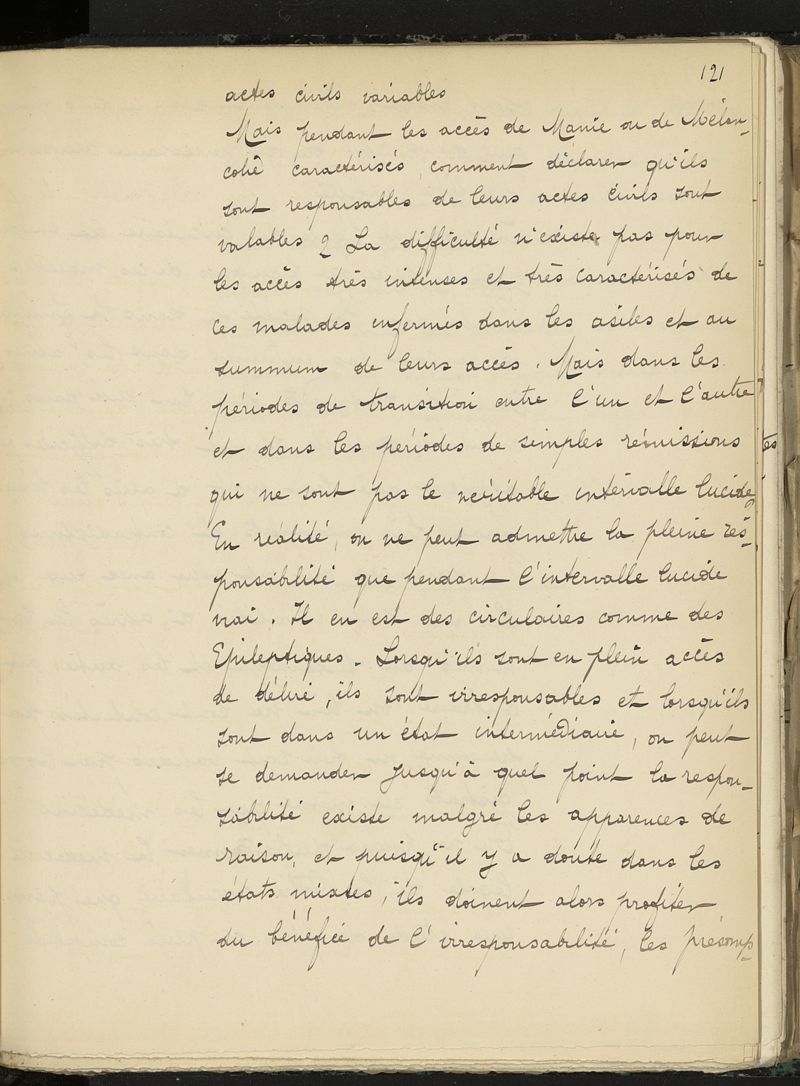 121
actes civils variables
Mais pendant les accès de Manie ou de Mélan-
colie caractérisés, comment déclarer qu'ils
sont responsables de leurs actes civils sont
valables ? La difficulté n'existe pas pour
les accès très intenses et très caractérisés de
ces malades enfermés dans les asiles et au
summum de leurs accès. Mais dans les
périodes de transition entre l'un et l'autre
et dans les périodes de simples rémissions
qui ne sont pas le véritable intervalle lucide,
En réalité, on ne peut admettre la pleine res-
ponsabilité que pendant l'intervalle lucide
vrai. Il en est des circulaires comme des
Epileptiques. Lorsqu'ils sont en plein accès
de délire, ils sont irresponsables et lorsqu'ils
sont dans un état intermédiaire, on peut
se demander jusqu'à quel point la respon-
sabilité existe malgré les apparences de
raison, et puisqu'il y a doute dans les
états mixtes, ils doivent alors profiter
du bénéfice de l'irresponsabilité, les présomp-